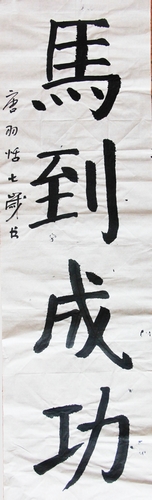 馬到成功
唐羽恬七歲书